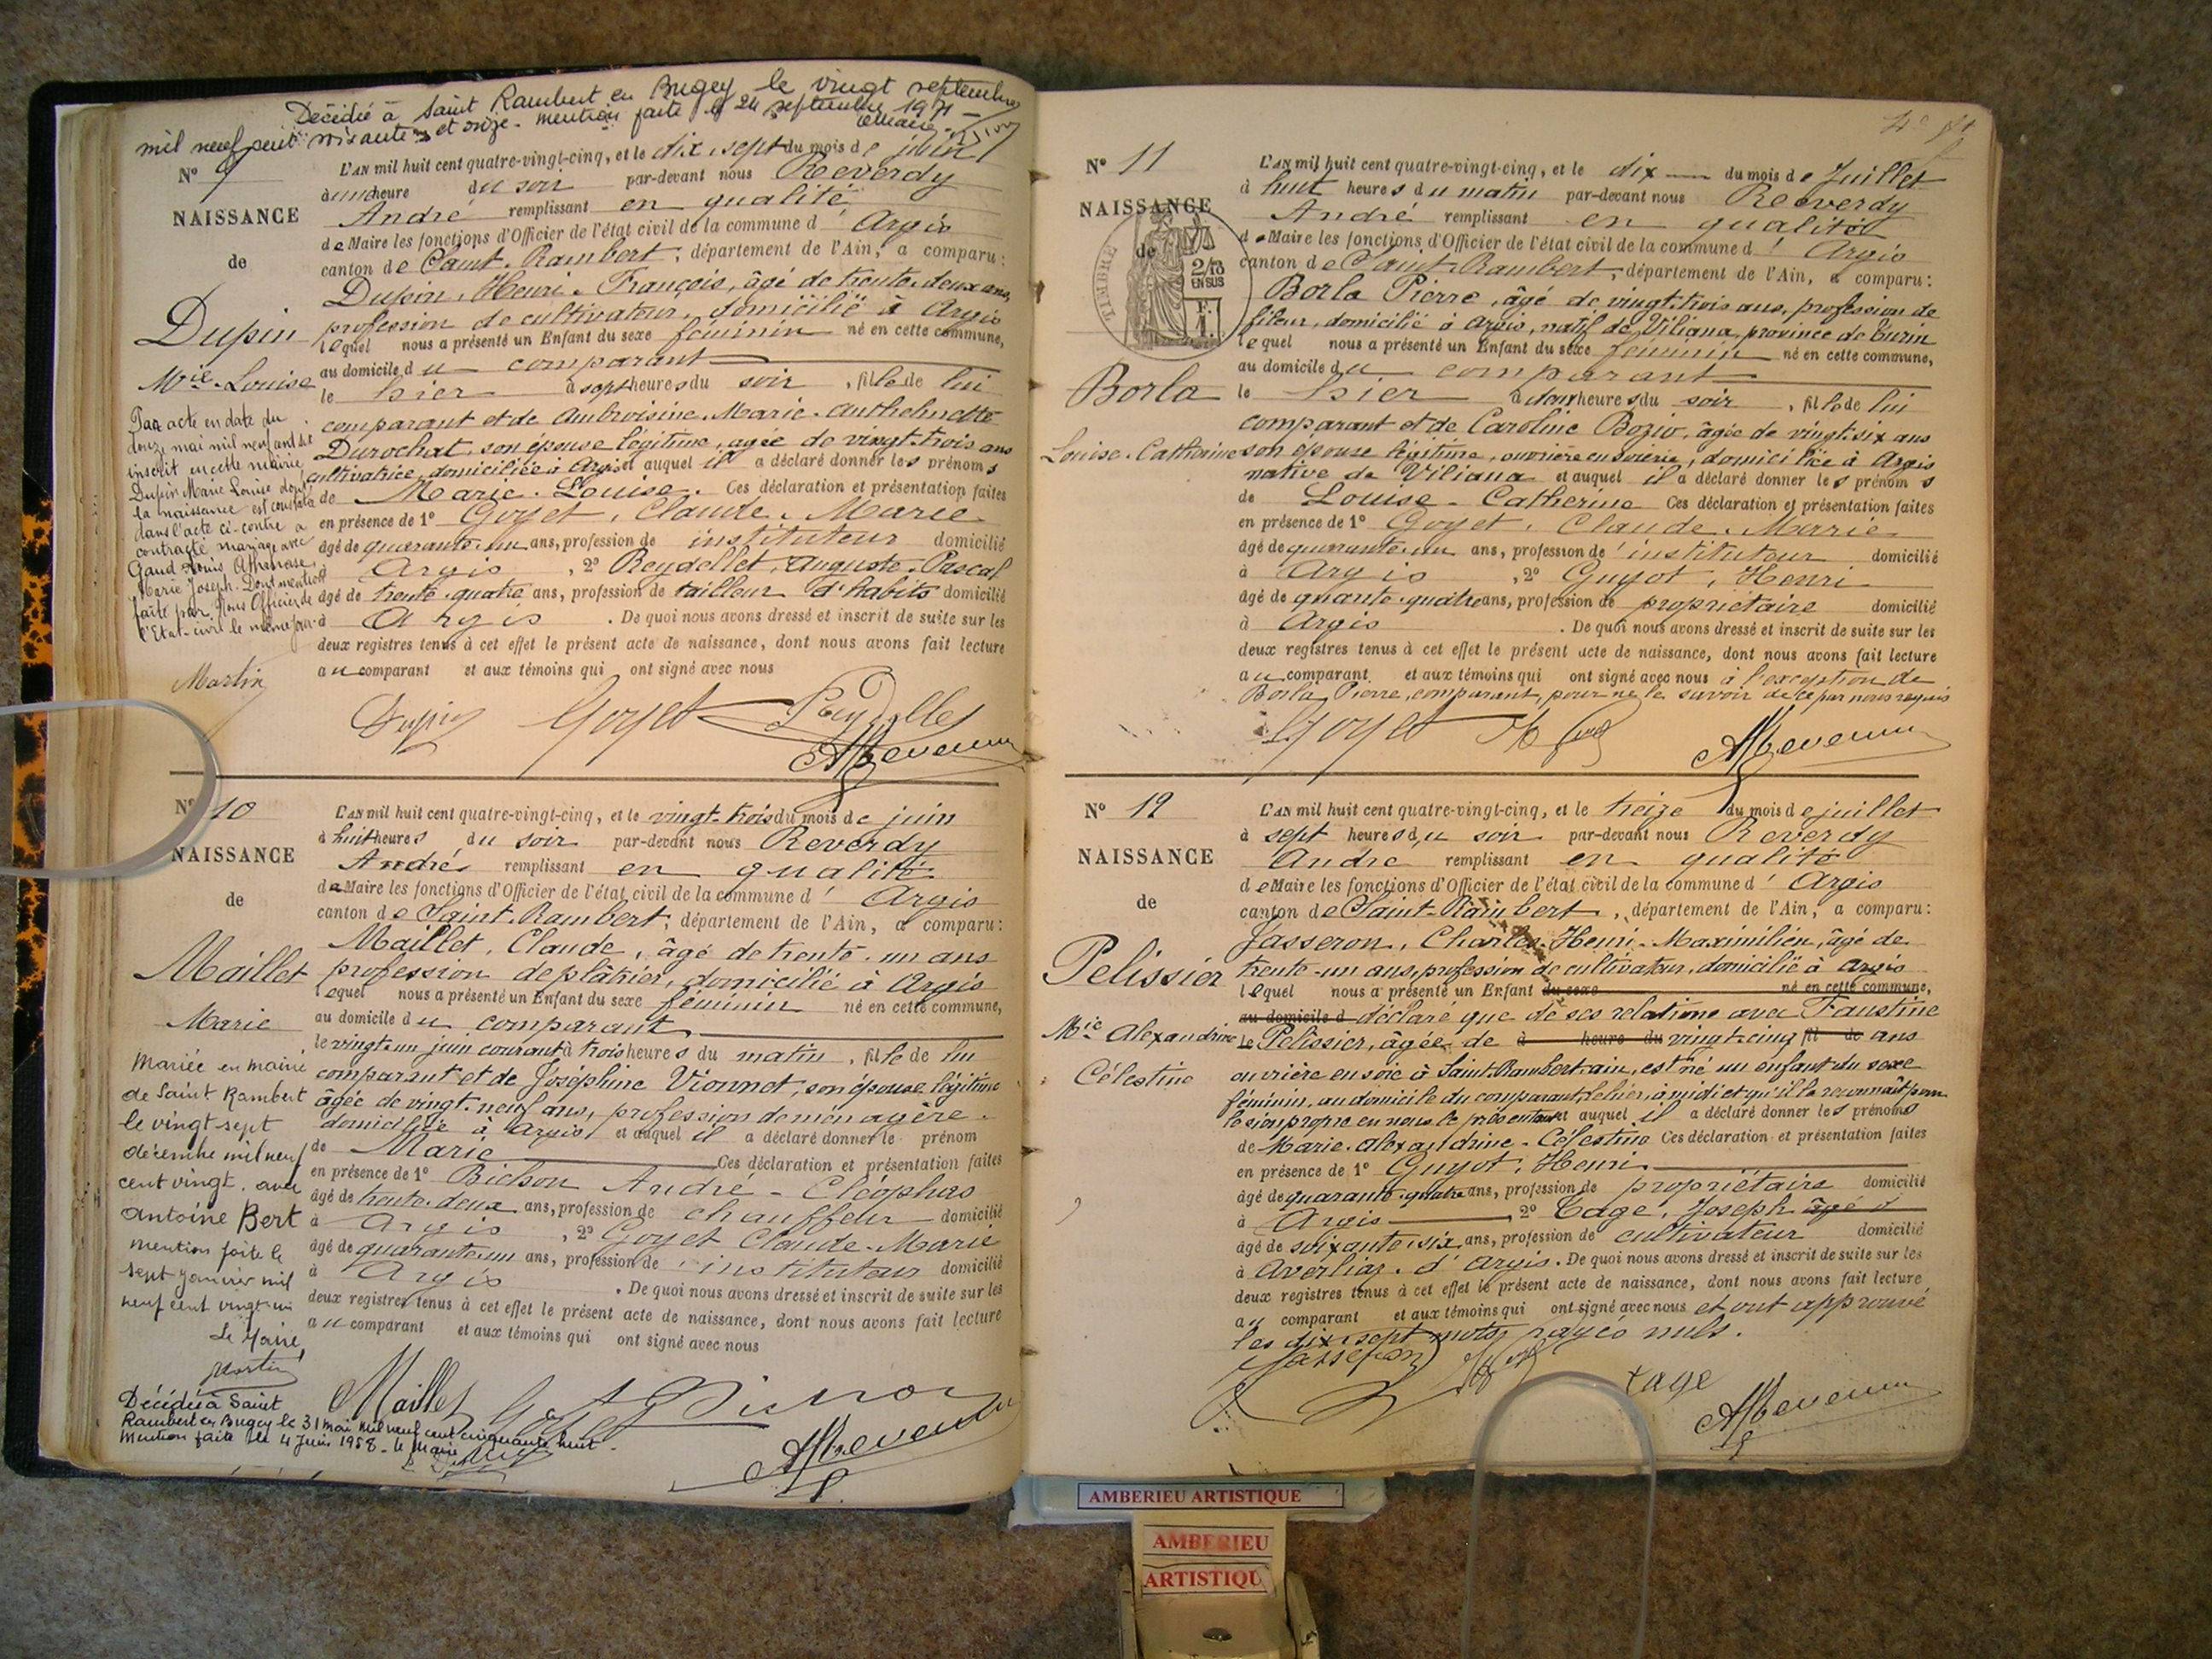 Décédée à Saint Rambert en Bugey le vingt septembre
mil neuf cent soixante et onze. mention faite le 24 septembre 1971
N° 9
NAISSANCE
de
Dupin
Mie Louise
L'AN mil huit cent quatre-vingt-cinq, et le dix-sept du mois de juin
à une heure du soir par-devant nous Reverdy
André remplissant en qualité
de Maire les fonctions d'Officier de l'état civil de la commune d'Argis
canton de Saint-Rambert, département de l'Ain, a comparu:
Dupin, Henri-François, âgé de trente-deux ans,
profession de cultivateur, domicilié à Argis
lequel nous a présenté un Enfant du sexe féminin né en cette commune,
au domicile du comparant
le hier à sept heures du soir, fille de lui
comparant et de Ambroisine-Marie-Anthelmette
Durochat, son épouse légitime, agée de vingt-trois ans
cultivatrice, domiciliée à Argis et auquel il a déclaré donner les prénoms
de Marie-Louise. Ces déclaration et présentation faites
en présence de 1° Goyet, Claude-Marie
âgé de quarante-un ans, profession de instituteur domicilié
à Argis, 2° Reydellet, Auguste-Pascal
âgé de trente-quatre ans, profession de tailleur d'habits domicilié
à Argis. De quoi nous avons dressé et inscrit de suite sur les
deux registres tenus à cet effet le présent acte de naissance, dont nous avons fait lecture
au comparant et aux témoins qui ont signé avec nous
Par acte en date du
douze mai mil neuf cent dix
inscrit en cette mairie
Dupin Marie Louise dont
la naissance est constatée
dans l'acte ci-contre a
contracté mariage avec
Gaud Louis Athanase
Marie Joseph. Dont mention
faite par Nous Officier de
l'Etat-civil le même jour.
Martin
Dupin Goyet Reydellet
AReverdy
N° 10
NAISSANCE
de
Maillet
Marie
L'AN mil huit cent quatre-vingt-cinq, et le vingt-trois du mois de juin
à huit heures du soir par-devant nous Reverdy
André remplissant en qualité
de Maire les fonctions d'Officier de l'état civil de la commune d'Argis
canton de Saint-Rambert, département de l'Ain, a comparu:
Maillet, Claude, âgé de trente-un ans
profession de plâtrier, domicilié à Argis
lequel nous a présenté un Enfant du sexe féminin né en cette commune,
au domicile du comparant
le vingt-un juin courant à trois heures du matin, fille de lui
comparant et de Joséphine Vionnet, son épouse légitime
âgée de vingt-neuf ans, profession de ménagère
domiciliée à Argis, et auquel il a déclaré donner le prénom
de Marie Ces déclaration et présentation faites
en présence de 1° Bichon André-Cléophas
âgé de trente-deux ans, profession de chauffeur domicilié
à Argis, 2° Goyet Claude-Marie
âgé de quarante-un ans, profession de instituteur domicilié
à Argis. De quoi nous avons dressé et inscrit de suite sur les
deux registres tenus à cet effet le présent acte de naissance, dont nous avons fait lecture
au comparant et aux témoins qui ont signé avec nous
Mariée en mairie
de Saint Rambert
le vingt-sept
décembre mil neuf
cent vingt. avec
Antoine Bert
mention faite le
sept janvier mil
neuf cent vingt-un
Le Maire
Martin
Décédée à Saint
Rambert en Bugey le 31 mai mil neuf cent cinquante huit.
Mention faite le 4 Juin 1958. Le Maire
Maillet Goyet Bichon
AReverdy
N° 11
NAISSANCE
de
TIMBRE
2/10
EN SUS
Borla
Louise-Catherine
L'AN mil huit cent quatre-vingt-cinq, et le dix du mois de Juillet
à huit heures du matin par-devant nous Reverdy
André remplissant en qualité
de Maire les fonctions d'Officier de l'état civil de la commune d'Argis
canton de Saint-Rambert, département de l'Ain, a comparu:
Borla Pierre, âgé de vingt-trois ans, profession de
fileur, domicilié à Argis, natif de Viliana, province de Turin
lequel nous a présenté un Enfant du sexe féminin né en cette commune,
au domicile du comparant
le hier à deux heures du soir, fille de lui
comparant et de Caroline Bozio, âgée de vingt-six ans
son épouse légitime, ouvrière en soierie, domiciliée à Argis
native de Viliana et auquel il a déclaré donner les prénoms
de Louise-Catherine Ces déclaration et présentation faites
en présence de 1° Goyet, Claude-Marie
âgé de quarante-un ans, profession de instituteur domicilié
à Argis, 2° Guyot, Henri
âgé de quante-quatre ans, profession de propriétaire domicilié
à Argis. De quoi nous avons dressé et inscrit de suite sur les
deux registres tenus à cet effet le présent acte de naissance, dont nous avons fait lecture
au comparant et aux témoins qui ont signé avec nous à l'exception de
Borla Pierre, comparant, pour ne le savoir de ce par nous requis
Goyet
AReverdy
N° 12
NAISSANCE
de
Pelissier
Mie Alexandrine
Célestine
L'AN mil huit cent quatre-vingt-cinq, et le treize du mois de juillet
à sept heures du soir par-devant nous Reverdy
André remplissant en qualité
de Maire les fonctions d'Officier de l'état civil de la commune d'Argis
canton de Saint-Rambert, département de l'Ain, a comparu:
Jasseron, Charles-Henri-Maximilien, âgé de
trente-un ans, profession de cultivateur, domicilié à Argis
lequel nous a présenté un Enfant du sexe né en cette commune,
au domicile d déclaré que de ses relations avec Faustine
le Pelissier, âgée de à heure du vingt-cinq fil de ans
ouvrière en soie à Saint-Rambert-ain, est né un enfant du sexe
féminin, au domicile du comparant, le hier, à midi et qu'il la reconnaît pour
le sien propre en nous le présentant auquel il a déclaré donner les prénoms
de Marie-Alexandrine-Célestine Ces déclaration et présentation faites
en présence de 1° Guyot, Henri
âgé de quarante-quatre ans, profession de propriétaire domicilié
à Argis, 2° Tage, Joseph âgé d
âgé de soixante-six ans, profession de cultivateur domicilié
à Averliaz-d'Argis. De quoi nous avons dressé et inscrit de suite sur les
deux registres tenus à cet effet le présent acte de naissance, dont nous avons fait lecture
au comparant et aux témoins qui ont signé avec nous et ont approuvé
les dix-sept mots rayés nuls.
Jasseron tage
AReverdy
AMBERIEU ARTISTIQUE
AMBERIEU
ARTISTIQU